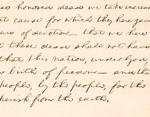 se honored dead we take increas
at cause for which they here gav
ure of devotion - that we here
t these dead shall not have
that this nation, under God,
w birth of freedom - and tha
people, by the people, for the
perish from the earth.